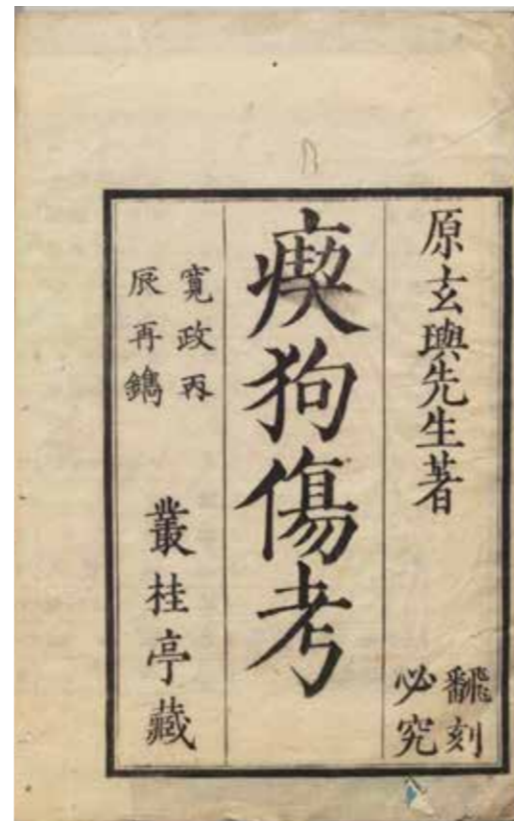 原玄與先生著
飜刻
必究
瘈狗傷考
寛政丙
辰再鐫
叢桂亭藏